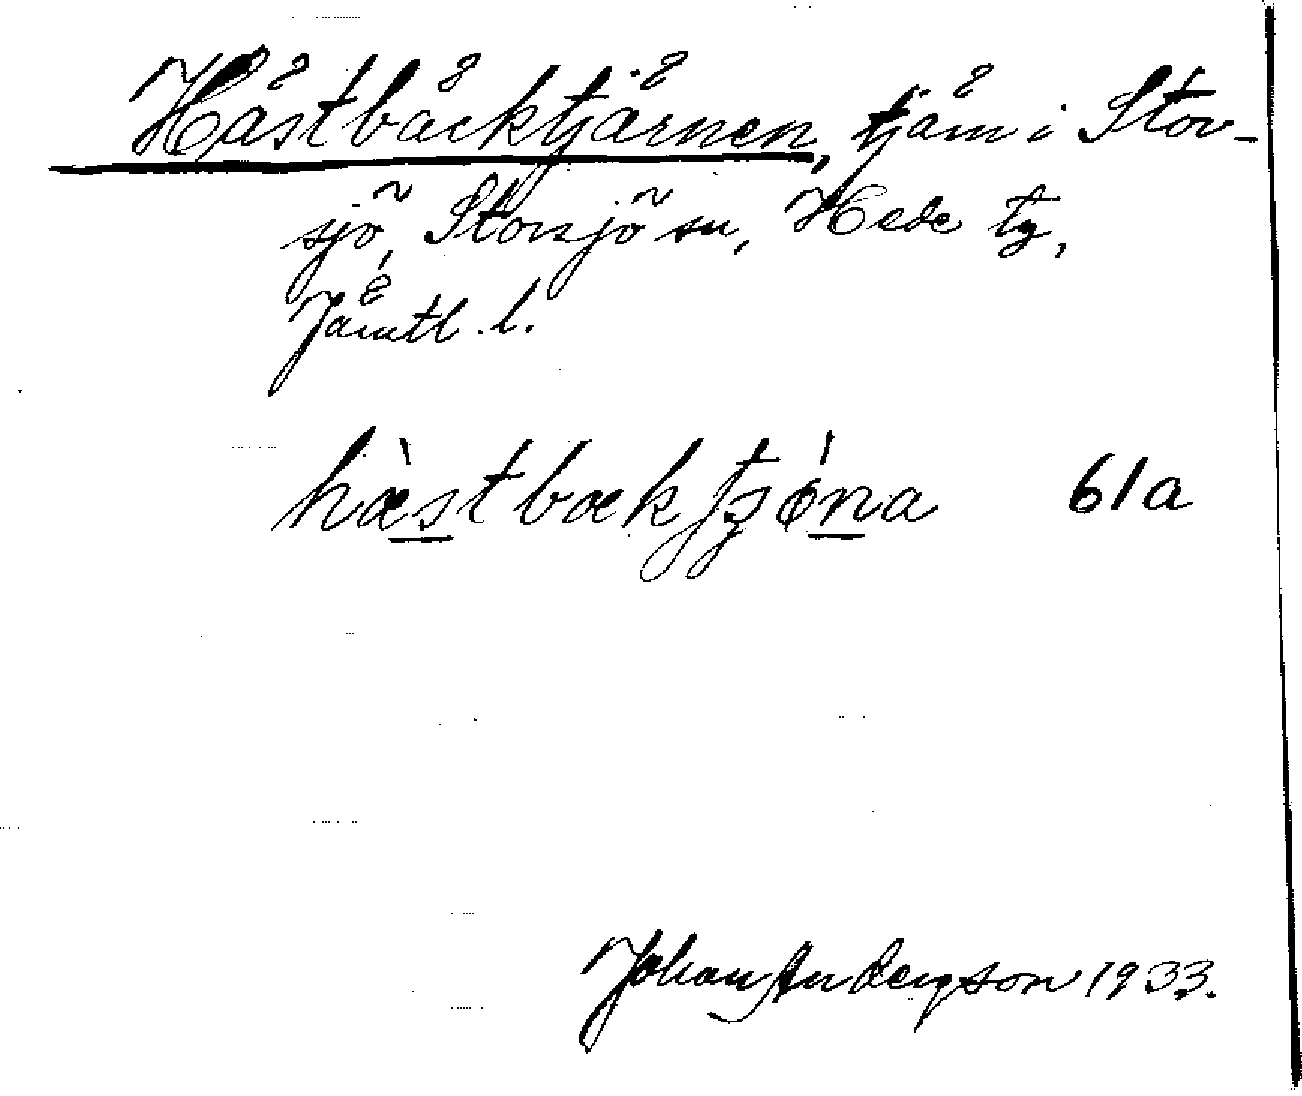 Hästbäcktjärnen, tjärn i Stor-
sjö, Storsjö sn, Hede tg,
Jämtl. l.
hæ̀stbækʃʒǿna 61a
Johan Anbergson 1933.